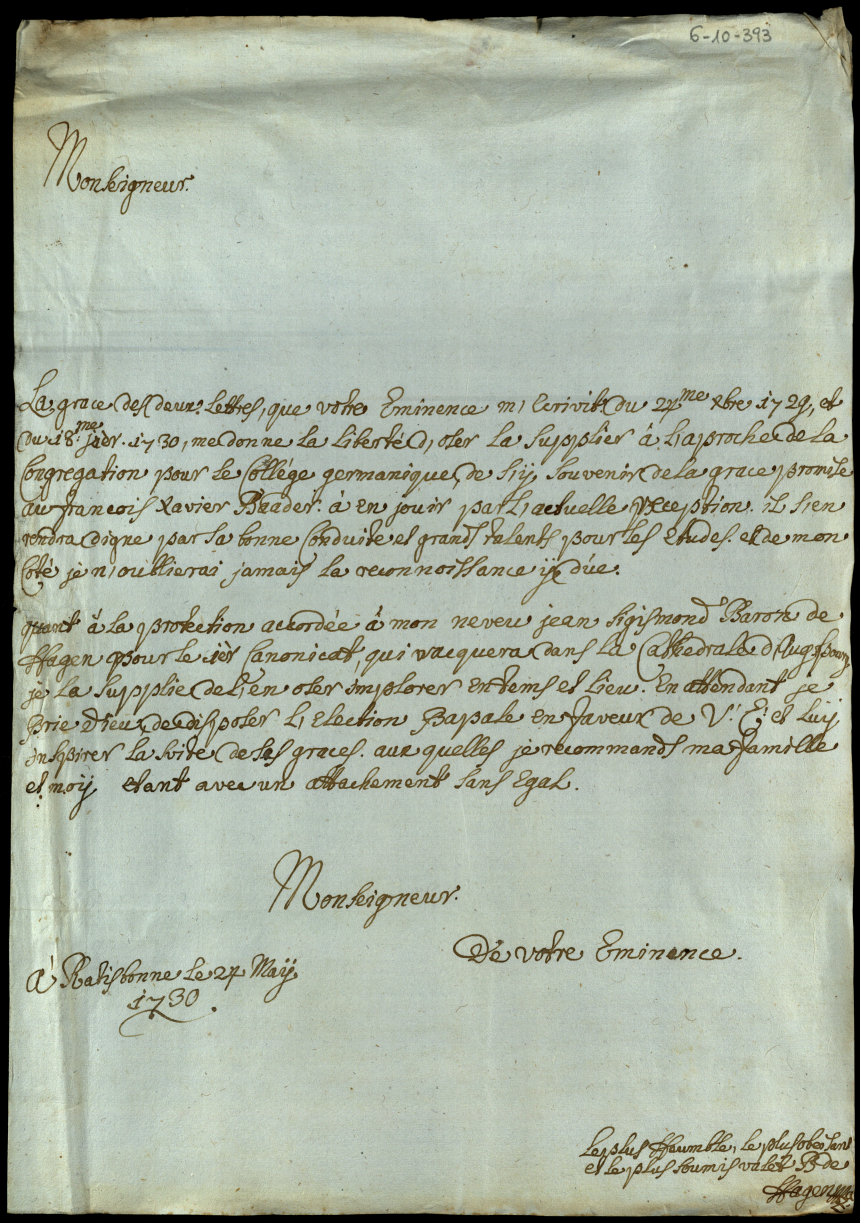 6-10-393
Monseigneur.
La grace des deux lettres, que votre Eminence m, Ecrivit du 24me xbre 1729, et
du 18.me jier. 1730, me donne la Liberté d, oser la supplier à l, aproche de la
Congregation pour le Collége germanique, de s,ÿ, souvenir de la grace promise
au francois Xavier Baader. à en jouir par l, actuelle reception. il s, en
rendra digne par sa bonne Conduite et grands talents pour les Etudes. et de mon
Coté je n, oublierai jamais la reconnoissance ÿ düe.
quant à la protection accordée à mon neveu jean Sigismond Baron de
Hagen pour le ier Canonicat, qui vacquera dans la Cathedrale d, Augsbourg
je la supplie de l, en oser implorer en tems et lieu. En attendant je
Prie Dieu, de disposer l, Election Papale en faveur de V: E: et luÿ
inspirer la suite de ses graces. aux quelles je recommands ma famille
et moÿ etant avec un attachement sans Egal.
Monseigneur.
De votre Eminence.
à Ratisbonne le 24 Maÿ
1730.
Le plus Houmble, le plus obeisant
et le plus soumis valet B de
Hagen